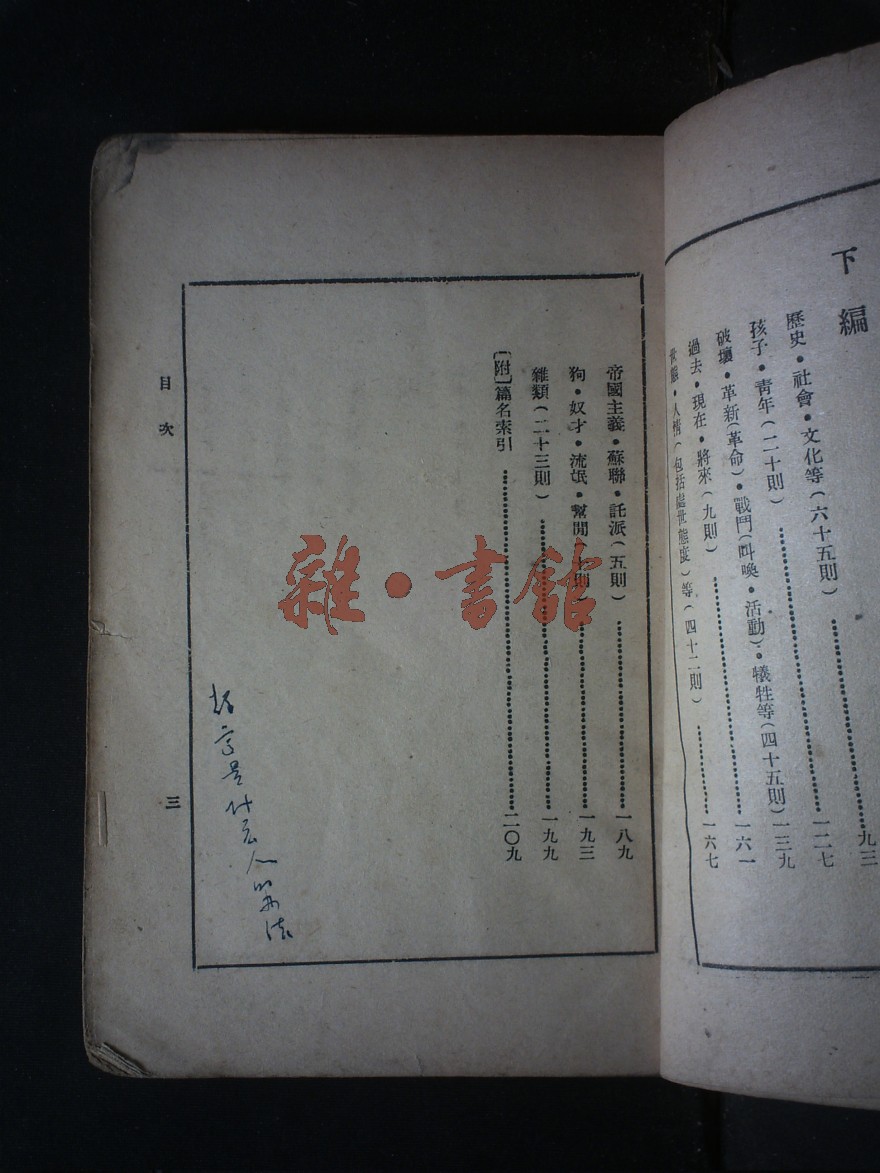 下編
歷史・社會・文化等(六十五則)……九三
孩子・靑年(二十則)……一二七
破壞・革新(革命)・戰鬥(叫喚・活動)・犧牲等(四十五則)一三九
過去・現在・將來(九則)……一六一
世態・人情(包括處世態度)等(四十二則)……一六七
帝國主義・蘇聯・託派(五則)……一八九
狗・奴才・流氓・幫閒(十則)……一九三
雜類(二十三則)……一九九
〔附〕篇名索引……二〇九
目次
三
雜・書館